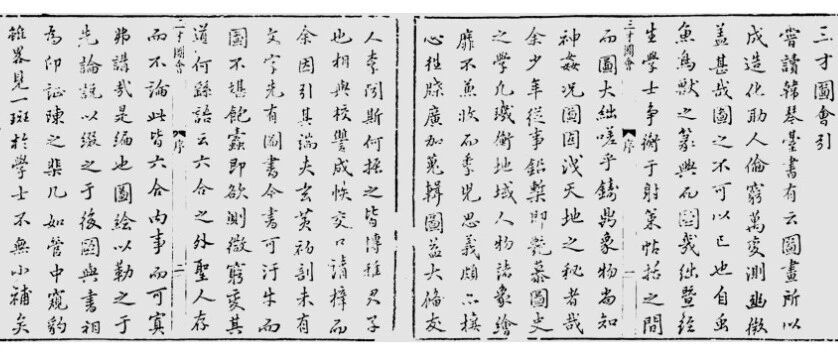 三才圖會引
嘗讀韓琴臺書有云圖畫所以
成造化助人倫窮萬變測幽微
盖甚哉圖之不可以已也自虫
魚鳥獸之篆興而圖幾絀暨經
生學士爭衡于射策帖括之間
三才圖會 序 一
而圖大絀嗟乎鑄鼎象物尚知
神姦况圖固洩天地之秘者哉
余少年從事鉛槧即艷慕圖史
之學凡璣衡地域人物諸象繪
靡不兼收而季兒思義頗亦棲
心往牒廣加蒐輯圖益大備友
人李閏斯何振之皆博雅君子
也相與校讐成帙交口請梓而
余因引其端夫玄黃初剖未有
文字先有圖書今書可汗牛而
圖不堪飽蠹即欲測微窮變其
三才圖會 序 二
道何繇語云六合之外聖人存
而不論此皆六合內事而可寘
弗講哉是編也圖繪以勒之于
先論說以綴之于後圖與書相
為印証陳之棐几如管中窺豹
雖畧見一斑於學士不無小補矣